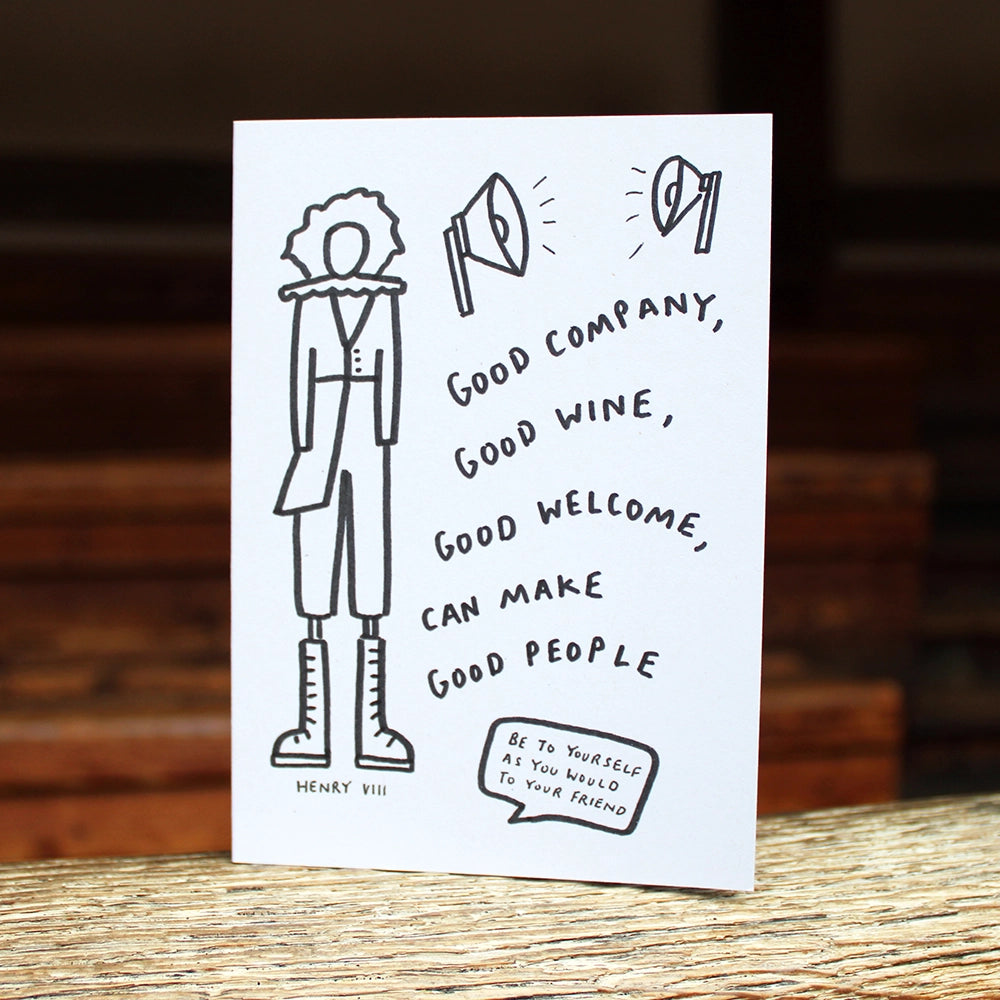 GOOD COMPANY,
GOOD WINE,
GOOD WELCOME,
CAN MAKE
GOOD PEOPLE
BE TO YOURSELF
AS YOU WOULD
TO YOUR FRIEND
HENRY VIII